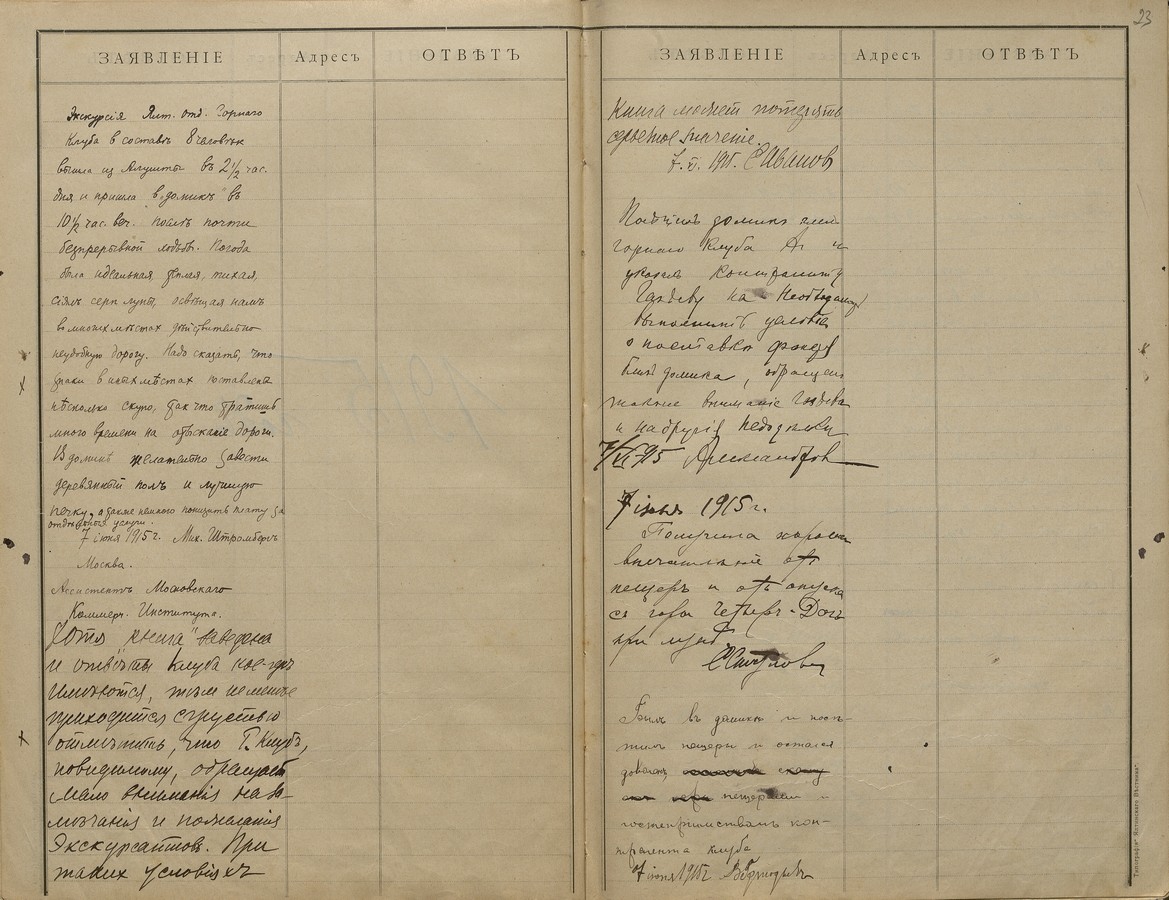 23
ЗАЯВЛЕНІЕ Адресъ ОТВѢТЪ
Экскурсія Ялт. отд. Горнаго
Клуба в составѣ 8 человѣк
вышла из Алушты въ 2½ час.
дня и пришла в домикъ въ
10½ час. веч. послѣ почти
безпрерывной ходьбы. Погода
была идеальная, теплая, тихая,
сіялъ серп луны, освѣщая намъ
во многих мѣстах дѣйствительно
неудобную дорогу. Надо сказать, что
знаки в иных мѣстах поставлены
нѣсколько скупо, так что тратишь
много времени на отысканіе дороги.
В домикѣ желательно завести
деревянный полъ и лучшую
печку, а также немного понизить плату за
услуги.
7 іюня 1915 г. Мих. Штромбергъ
Москва.
Ассистентъ Московскаго
Коммерч. Института.
Хотя "книга" заведена
и отвѣты клуба кое-гдѣ
имѣются, тѣм не менѣе
приходится с грустью
отмѣтить, что Г. Клубъ,
повидимому, обращает
мало вниманія на за-
мѣчанія и пожеланія
Экскурсантовъ. При
таких условіяхъ
ЗАЯВЛЕНІЕ Адресъ ОТВѢТЪ
Книга может потерять
серьезное значеніе.
7. VI. 1915. С Иванов
Посѣтилъ домикъ
горнаго клуба и
указалъ контрагенту
на необходимо
выполнить условія
о поставкѣ
близъ домика, обращен
также вниманіе
и на другія недочеты
7/VI 915
7 іюня 1915 г.
Получила хорошее
впечатлѣніе отъ
пещеръ и отъ спуска
съ горы Четыръ-Дагъ
при лунѣ.
Былъ въ домикѣ и посѣ-
тилъ пещеры и остался
доволенъ
пещерами и
гостепріимствомъ кон-
трагента клуба
7 іюня 1915 г
Типографія "Ялтинскаго Вѣстника".